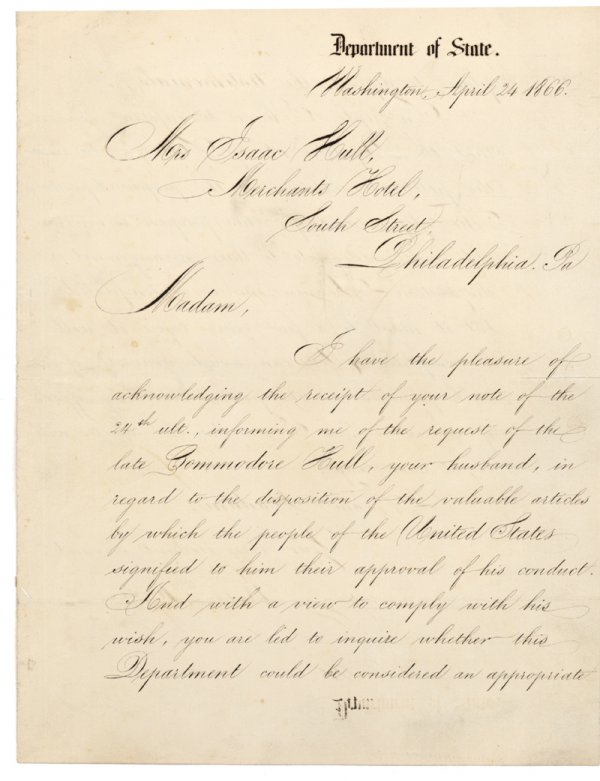 Department of State.
Washington, April 24 1866.
Mrs Isaac Hull,
Merchants Hotel,
South Street.
Philadelphia. Pa
Madam,
I have the pleasure of
acknowledging the receipt of your note of the
24th ult., informing me of the request of the
late Commodore Hull, your husband, in
regard to the disposition of the valuable articles
by which the people of the United States
signified to him their approval of his conduct.
And with a view to comply with his
wish, you are led to inquire whether this
Department could be considered an appropriate